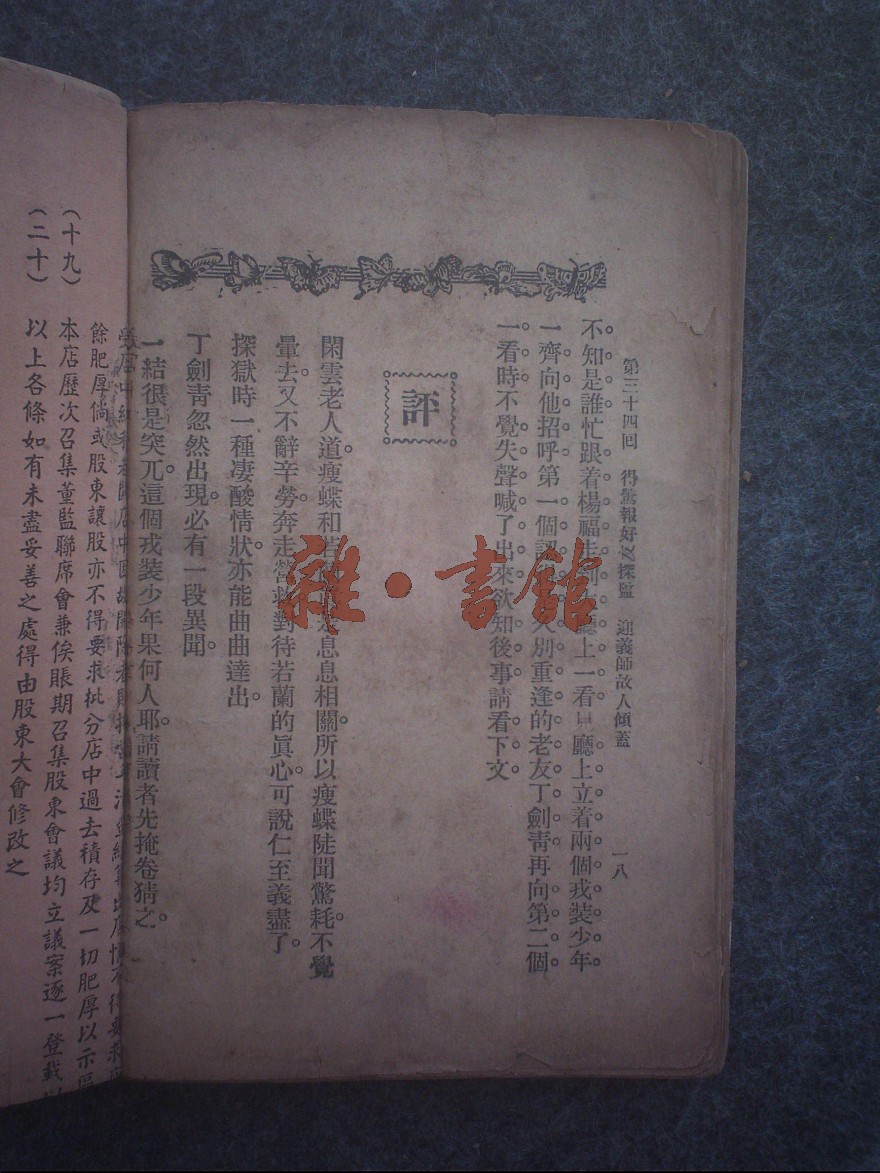 第三十四回 得驚報好友探監 迎義師故人傾蓋 一八
不知是誰忙跟着楊福走到廳上一看只見廳上立着兩個戎裝少年
一齊向他招呼第一個認是別重逢的老友丁劍靑再向第二個
一看時不覺失聲喊了出來欲知後事請看下文。
評
閑雲老人道瘦蝶和若蘭息息相關。所以瘦蝶陡聞驚耗。不覺
暈去。又不辭辛勞。奔走營救。對待若蘭的眞心。可說仁至義盡了。
探獄時一種淒酸情狀。亦能曲曲達出。
丁劍靑忽然出現。必有一段異聞。
一結很是突兀。這個戎裝少年果何人耶。請讀者先掩卷猜之。
雜·書館
餘肥厚倘或股東讓股亦不得要求批分店中過去積存及一切肥厚以示區
(十九) 本店歷次召集董監聯席會兼俟賬期召集股東會議均立議案逐一登載
(二十) 以上各條如有未盡妥善之處得由股東大會修改之